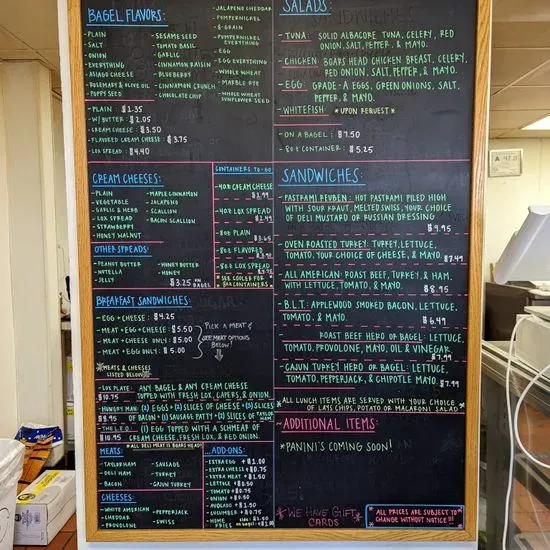 BAGEL FLAVORS:
- PLAIN
- SALT
- ONION
- EVERYTHING
- ASIAGO CHEESE
- ROSEMARY & OLIVE OIL
- POPPY SEED
- SESAME SEED
- TOMATO BASIL
- GARLIC
- CINNAMON RAISIN
- BLUEBERRY
- CINNAMON CRUNCH
- CHOCOLATE CHIP
- JALAPENO CHEDDAR
- PUMPERNICKEL
- 8-GRAIN
- PUMPERNICKEL EVERYTHING
- EGG
- EGG EVERYTHING
- WHOLE WHEAT
- MARBLE RYE
- WHOLE WHEAT SUNFLOWER SEED
- PLAIN : $1.35
- W/ BUTTER : $2.05
- CREAM CHEESE : $3.50
- FLAVORED CREAM CHEESE : $3.75
- LOX SPREAD : $4.40
CREAM CHEESES:
- PLAIN
- VEGETABLE
- GARLIC & HERB
- LOX SPREAD
- STRAWBERRY
- HONEY WALNUT
- MAPLE CINNAMON
- JALAPENO
- SCALLION
- BACON SCALLION
OTHER SPREADS:
- PEANUT BUTTER
- NUTELLA
- JELLY
- HONEY BUTTER
- HONEY
$3.25 ON BAGEL
CONTAINERS TO-GO
- 4oz CREAM CHEESE
$1.99
- 4oz LOX SPREAD
- 8oz PLAIN
- 8oz FLAVORED
- 8oz LOX SPREAD
* SEE COOLER FOR 8oz CONTAINERS *
BREAKFAST SANDWICHES:
- EGG + CHEESE : $4.25
- MEAT + EGG + CHEESE : $5.50
- MEAT + CHEESE ONLY : $5.00
- MEAT + EGG ONLY : $5.00
PICK A MEAT & SEE MEAT OPTIONS BELOW!
* MEATS & CHEESES LISTED BELOW *
- LOX PLATE : ANY BAGEL & ANY CREAM CHEESE
$10.75 TOPPED WITH FRESH LOX, CAPERS, & ONION.
- HUNGRY MAN: (2) EGGS + (2) SLICES OF CHEESE + (3) SLICES
$8.95 OF BACON + (1) SAUSAGE PATTY + (1) SLICE OF TAYLOR HAM
- THE LEO : (1) EGG TOPPED WITH A SHMEAR OF
$10.95 CREAM CHEESE, FRESH LOX, & RED ONION.
* ALL DELI MEAT IS BOARS HEAD *
MEATS:
- TAYLOR HAM
- DELI HAM
- BACON
- SAUSAGE
- TURKEY
- CAJUN TURKEY
CHEESES:
- WHITE AMERICAN
- CHEDDAR
- PROVOLONE
- PEPPERJACK
- SWISS
ADD-ONS:
- EXTRA EGG + $1.00
- EXTRA CHEESE + $0.75
- EXTRA MEAT + $1.50
- LETTUCE + $0.50
- TOMATO + $0.75
- ONION + $0.50
- AVOCADO + $1.50
- CUCUMBER + $0.75
- HOME FRIES
SALADS:
- TUNA: SOLID ALBACORE TUNA, CELERY, RED ONION, SALT, PEPPER, & MAYO.
- CHICKEN: BOARS HEAD CHICKEN BREAST, CELERY, RED ONION, SALT, PEPPER, & MAYO.
- EGG: GRADE-A EGGS, GREEN ONIONS, SALT, PEPPER, & MAYO.
- WHITEFISH: * UPON REQUEST *
- ON A BAGEL : $7.50
- 8oz CONTAINER : $5.25
SANDWICHES:
- PASTRAMI REUBEN : HOT PASTRAMI PILED HIGH
WITH SOUR KRAUT, MELTED SWISS, YOUR CHOICE
OF DELI MUSTARD OR RUSSIAN DRESSING
$9.95
- OVEN ROASTED TURKEY: TURKEY, LETTUCE,
TOMATO, YOUR CHOICE OF CHEESE, & MAYO.
$7.49
- ALL AMERICAN: ROAST BEEF, TURKEY, & HAM.
WITH LETTUCE, TOMATO, & MAYO.
$8.75
- B.L.T: APPLEWOOD SMOKED BACON, LETTUCE,
TOMATO, & MAYO.
$6.49
- ROAST BEEF HERO OR BAGEL: LETTUCE,
TOMATO, PROVOLONE, MAYO, OIL & VINEGAR.
$7.99
- CAJUN TURKEY HERO OR BAGEL: LETTUCE,
TOMATO, PEPPERJACK, & CHIPOTLE MAYO.
$7.99
* ALL LUNCH ITEMS ARE SERVED WITH YOUR CHOICE
OF LAYS CHIPS, POTATO OR MACARONI SALAD *
~ADDITIONAL ITEMS:
* PANINI'S COMING SOON!
* WE HAVE GIFT CARDS *
* ALL PRICES ARE SUBJECT TO
CHANGE WITHOUT NOTICE!! *